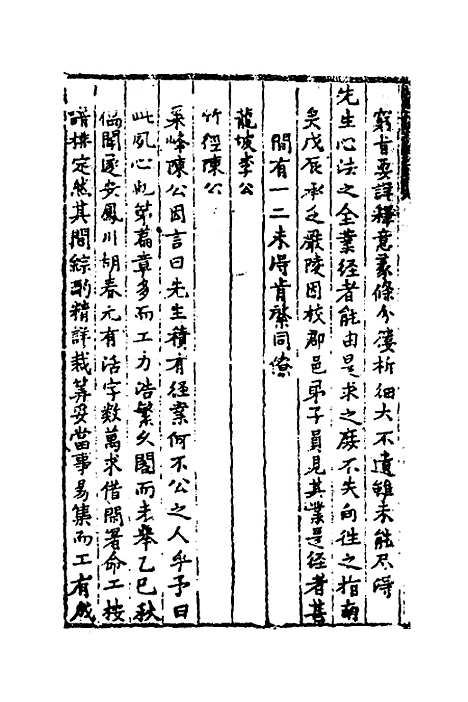 窮旨要詳釋意義條分縷析細大不遺雖未能尽得
先生心法之全業経者能由是求之庶不失向徃之指南
矣戊辰承乏嚴陵因校郡邑弟子員見其業是経者甚
間有一二未得肯綮同僚
龍坡李公
竹徑陳公
采峰陳公因言曰先生積有経案何不公之人乎予曰
此夙心也第篇章多而工力浩繁久閣而未舉乙巳秋
偶聞遂安鳳川胡春元有活字数萬求借開署命工按
譜排定然其間綜酌精詳裁筭妥當事易集而工有成